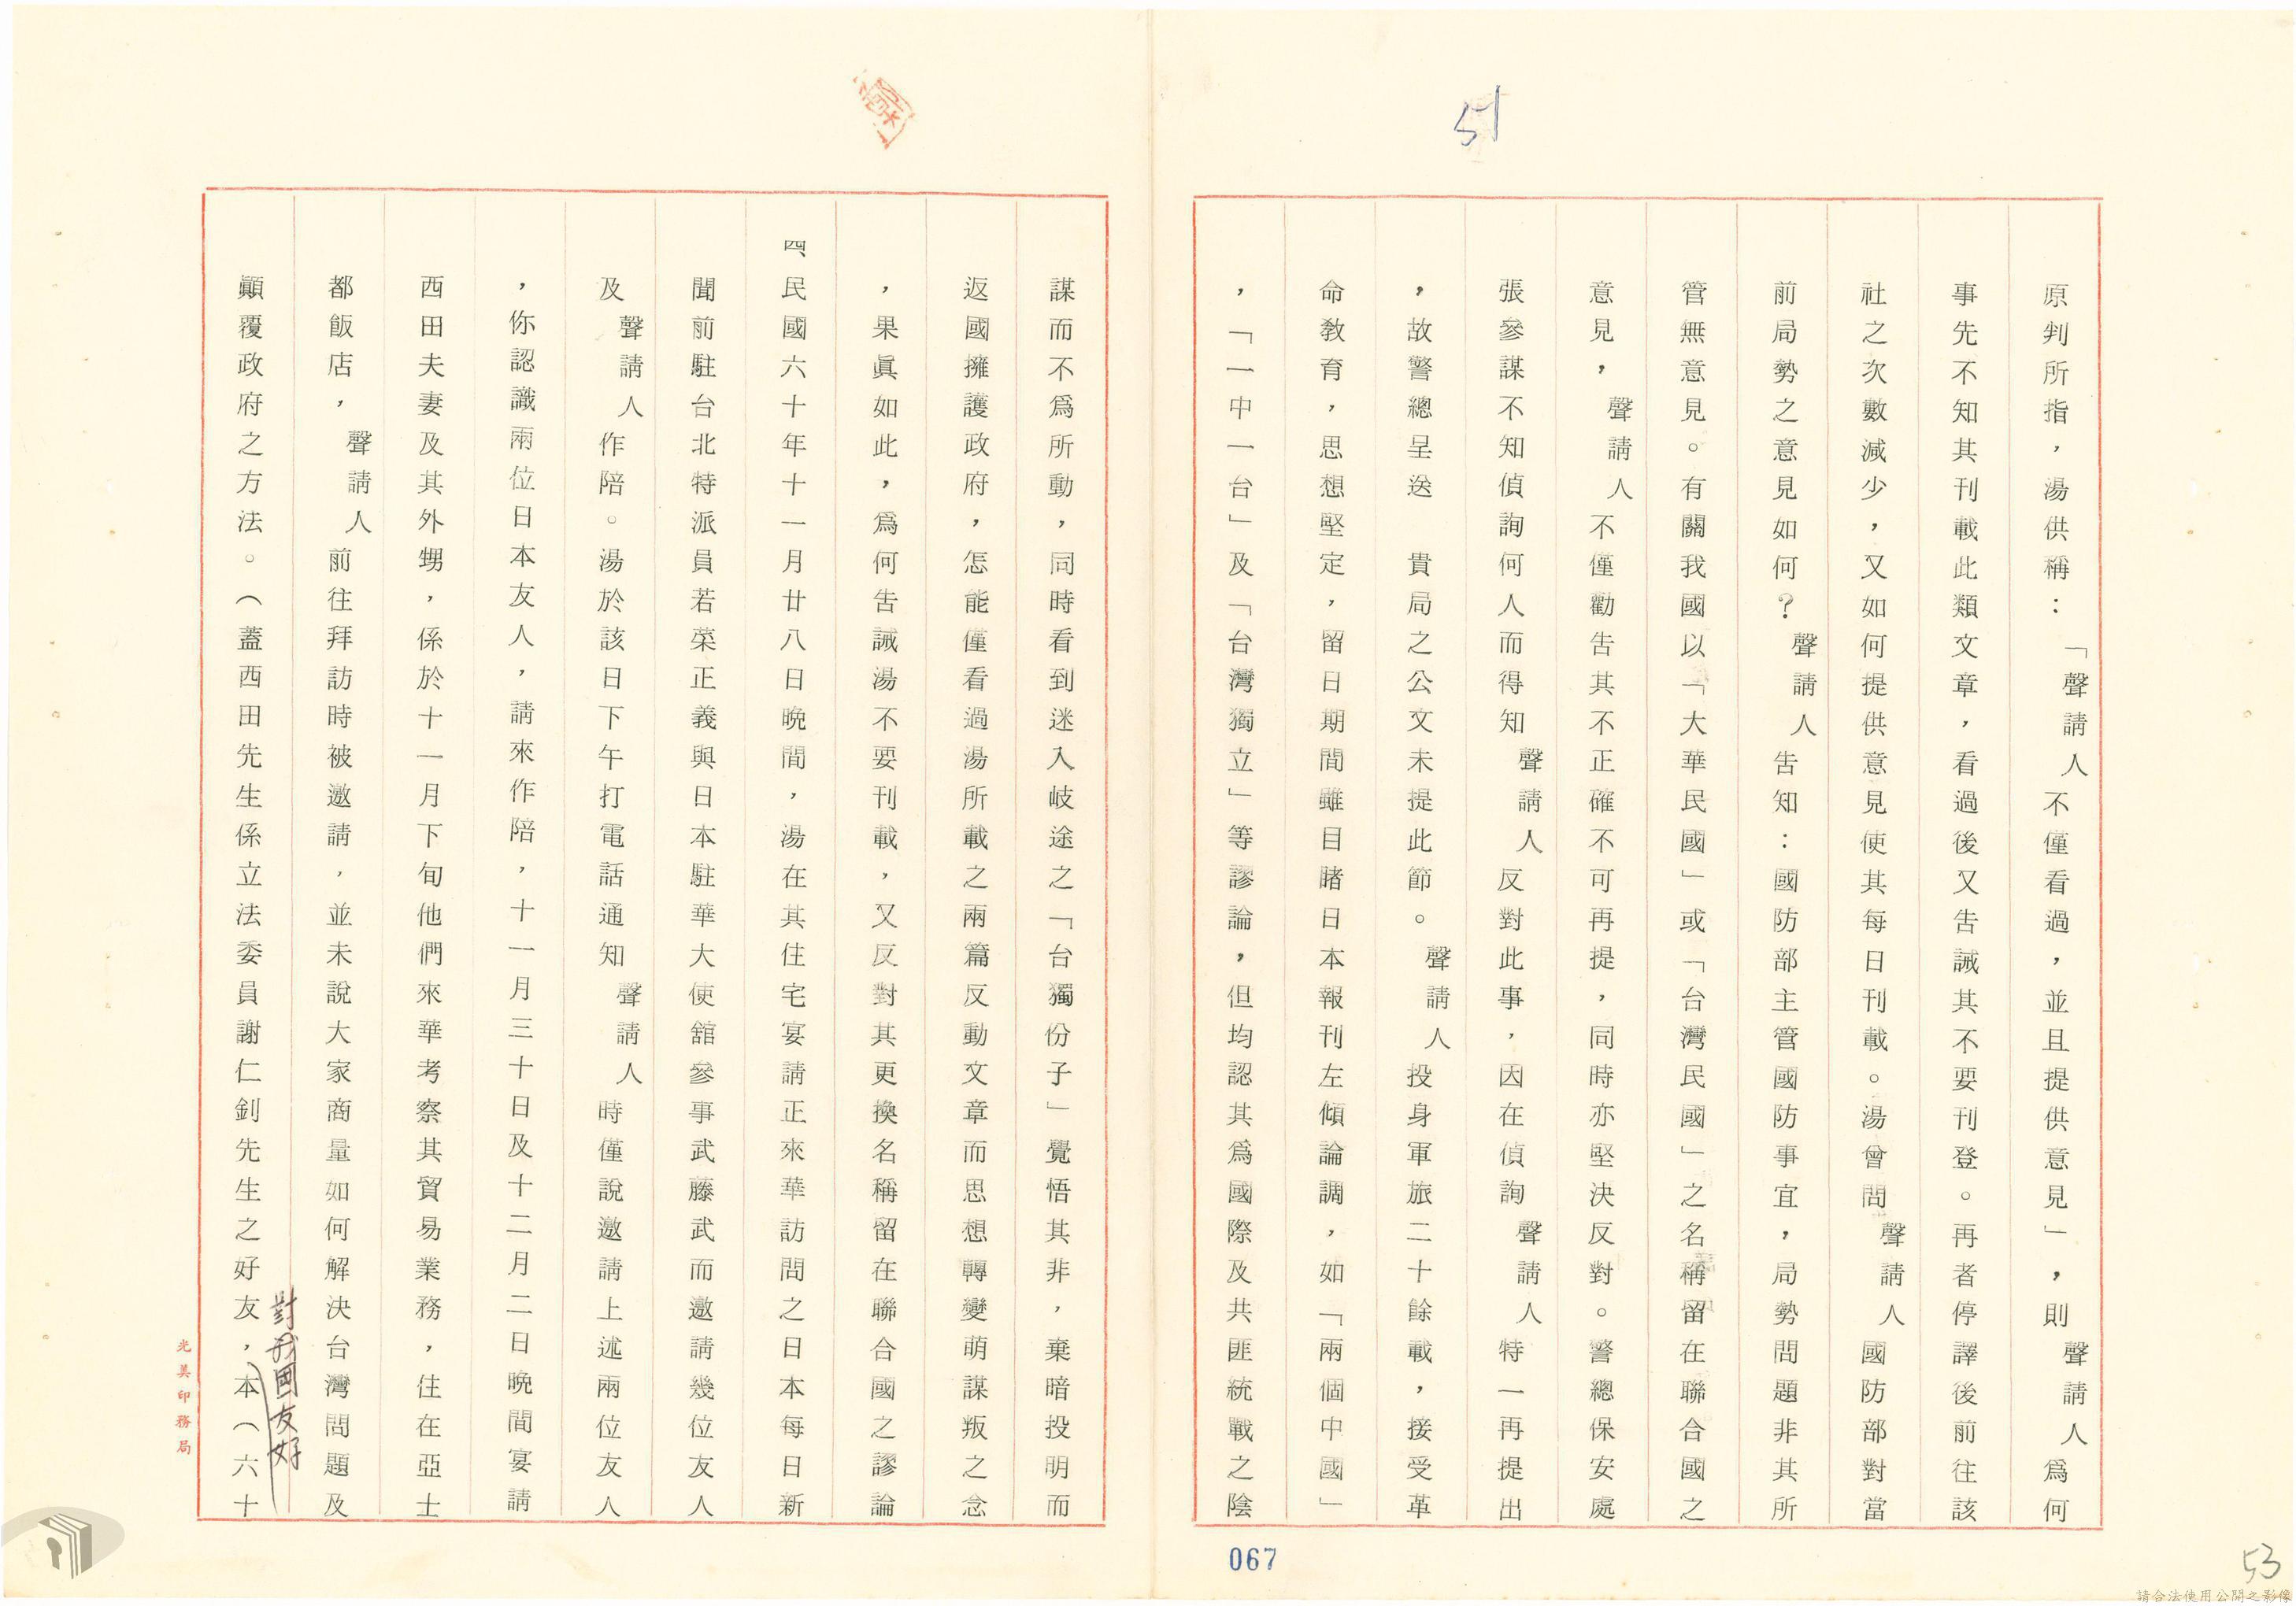 51
原判所指，湯供稱：「聲請人不僅看過，並且提供意見」，則聲請人爲何
事先不知其刊載此類文章，看過後又告誡其不要刊登。再者停譯後前往該
社之次數減少，又如何提供意見使其每日刊載。湯曾問聲請人國防部對當
前局勢之意見如何？聲請人告知：國防部主管國防事宜，局勢問題非其所
管無意見。有關我國以「大華民國」或「台灣民國」之名稱留在聯合國之
意見，聲請人不僅勸告其不正確不可再提，同時亦堅決反對。警總保安處
張參謀不知偵詢何人而得知聲請人反對此事，因在偵詢聲請人特一再提出
，故警總呈送　貴局之公文未提此節。聲請人投身軍旅二十餘載，接受革
命教育，思想堅定，留日期間雖目睹日本報刊左傾論調，如「兩個中國」
，「一中一台」及「台灣獨立」等謬論，但均認其爲國際及共匪統戰之陰
067
謀而不爲所動，同時看到迷入岐途之「台獨份子」覺悟其非，棄暗投明而
返國擁護政府，怎能僅看過湯所載之兩篇反動文章而思想轉變萌謀叛之念
，果眞如此，爲何告誡湯不要刊載，又反對其更換名稱留在聯合國之謬論
四、民國六十年十一月廿八日晚間，湯在其住宅宴請正來華訪問之日本每日新
聞前駐台北特派員若菜正義與日本駐華大使舘參事武藤武而邀請幾位友人
及聲請人作陪。湯於該日下午打電話通知聲請人時僅說邀請上述兩位友人
，你認識兩位日本友人，請來作陪，十一月三十日及十二月二日晚間宴請
西田夫妻及其外甥，係於十一月下旬他們來華考察其貿易業務，住在亞士
都飯店，聲請人前往拜訪時被邀請，並未說大家商量如何解決台灣問題及
顚覆政府之方法。（蓋西田先生係立法委員謝仁釗先生之好友，本（六十
對我國友好
光美印務局
53
請合法使用公開之影像